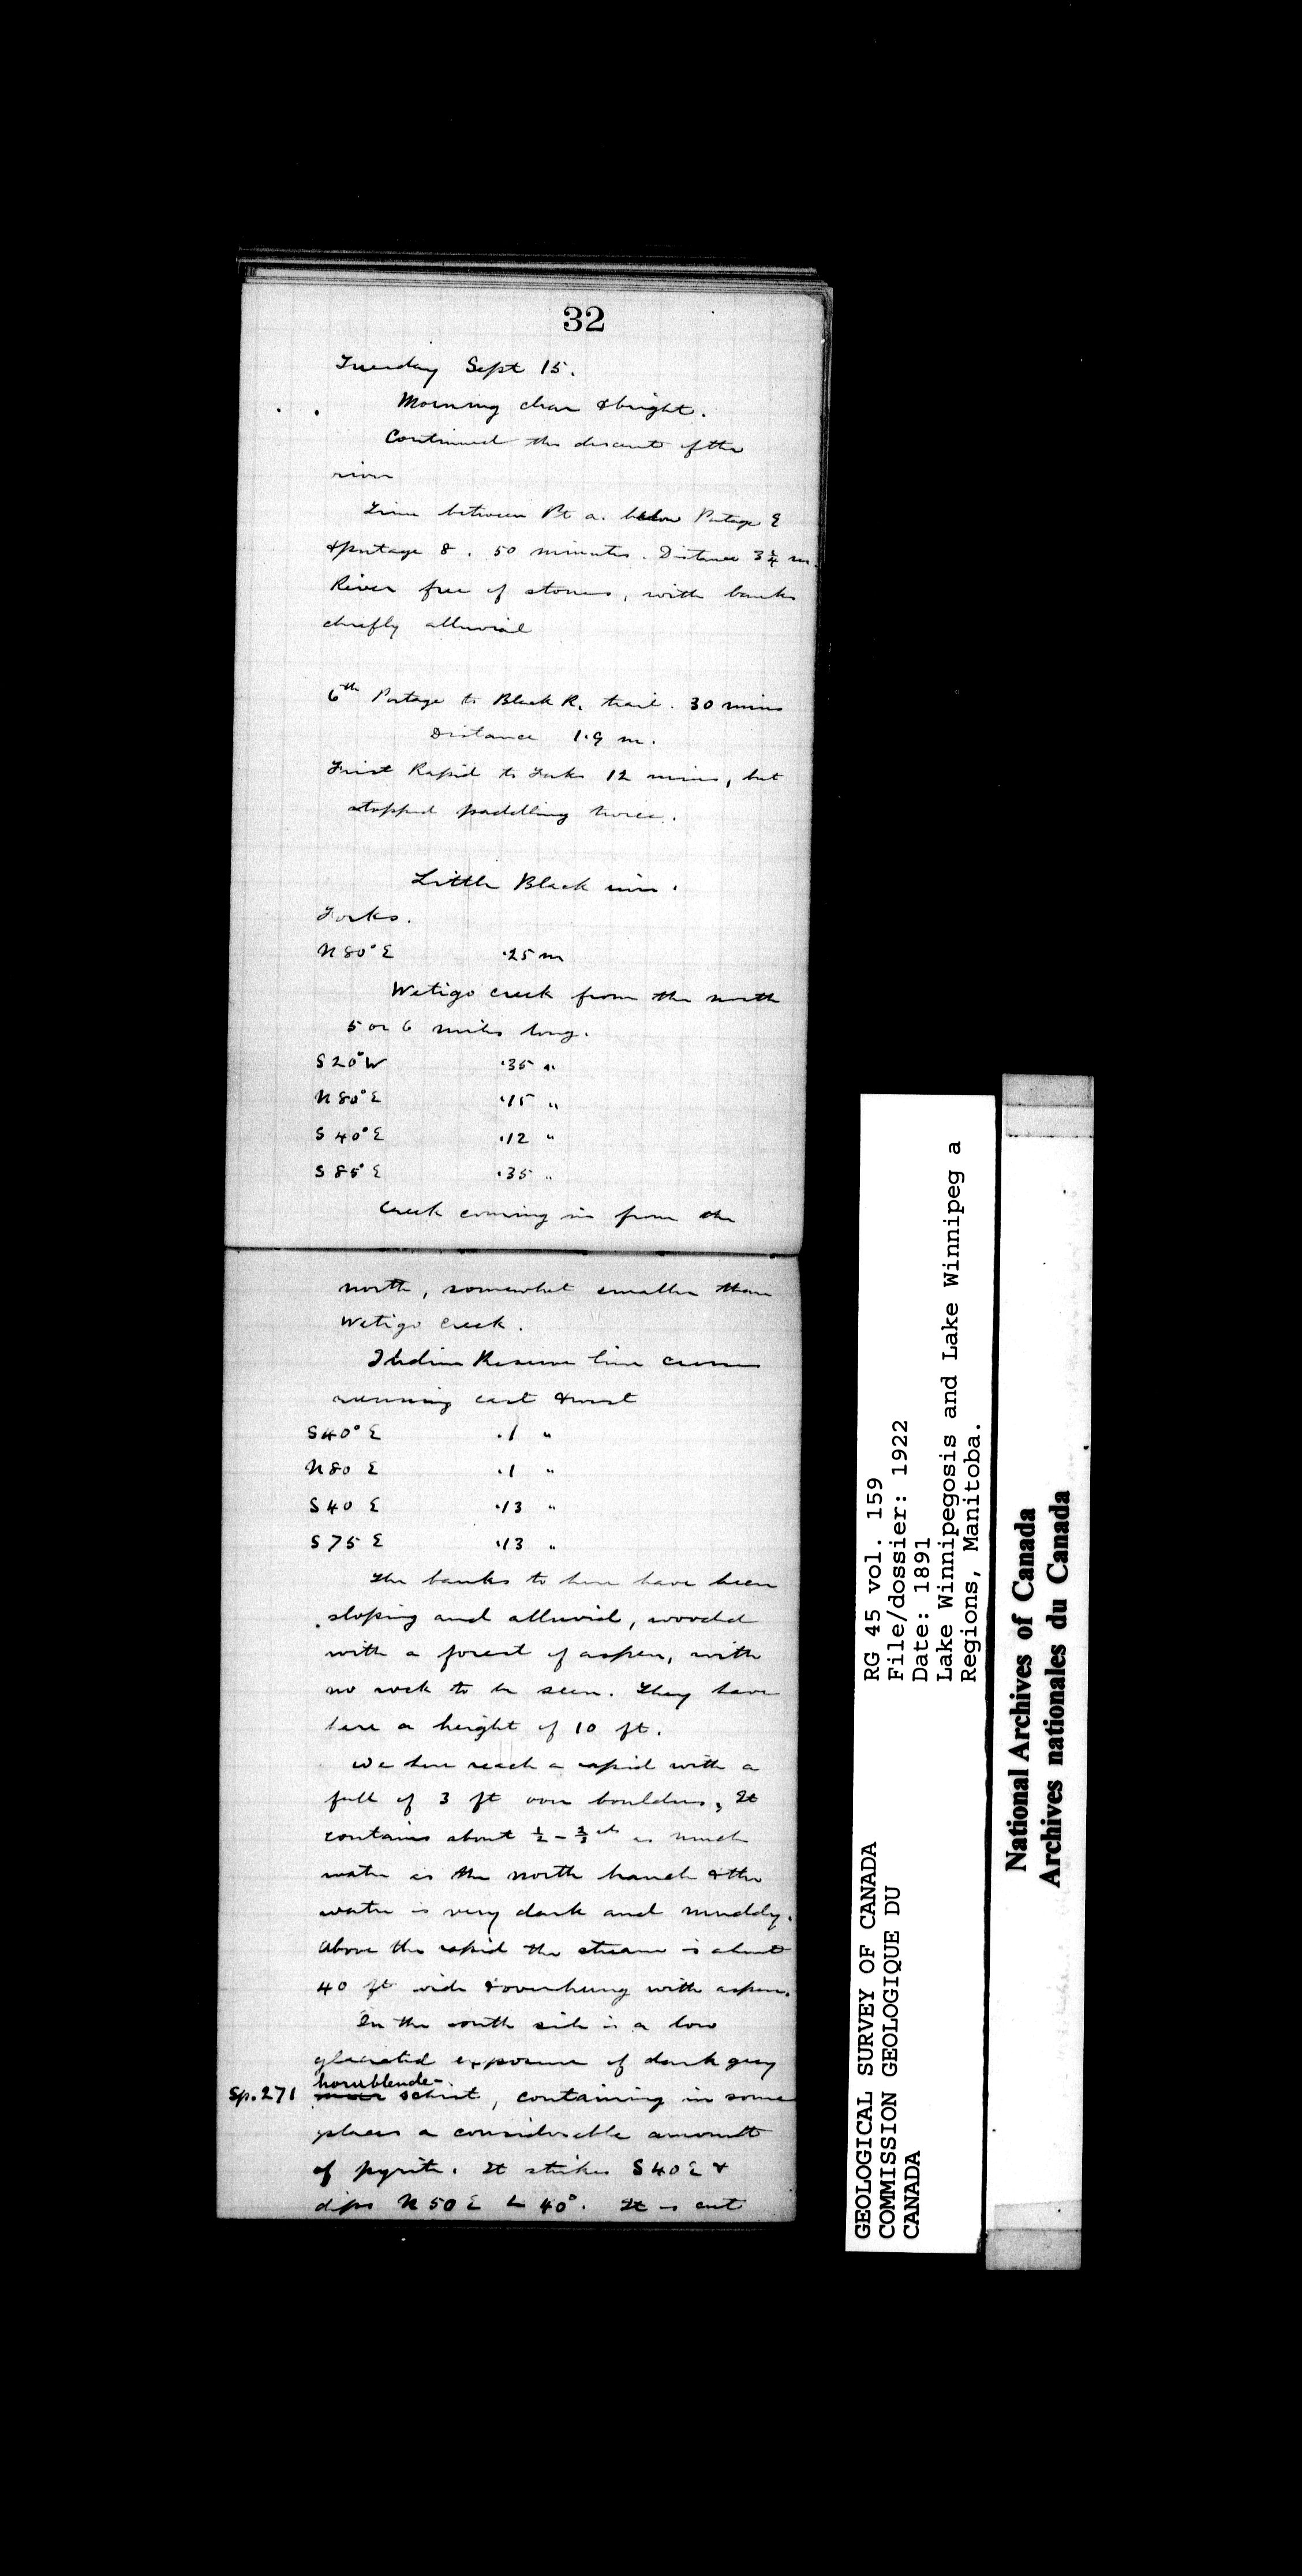 32
Tuesday Sept 15.
Morning clear & bright.
Continued the descent of the
river
Time between Pt a. below Portage E
& portage 8. 50 minutes. Distance 3¼ m.
River free of stones, with banks
chiefly alluvial
6th Portage to Black R. trail. 30 mins
Distance 1.9 m.
First Rapid to Forks 12 mins, but
stopped paddling twice.
Little Black river.
Forks.
N80°E .25 m
Wetigo creek from the north
5 or 6 miles long.
S20°W .35 "
N80°E .15 "
S40°E .12 "
S85°E .35 "
Creek coming in from the
north, somewhat smaller than
Wetigo Creek.
Indian Reserve line crosses
running east & west
S40°E .1 "
N80 E .1 "
S40 E .13 "
S75 E .13 "
The banks to here have been
sloping and alluvial, wooded
with a forest of aspen, with
no rock to be seen. They have
here a height of 10 ft.
We here reach a rapid with a
fall of 3 ft over boulders, It
contains about ½ - ⅔ as much
water as the north branch & the
water is very dark and muddy.
Above the rapid the stream is about
40 ft wide & overhung with aspen.
On the south side is a low
glaciated exposure of dark grey
hornblende-
Sp. 271 schist, containing in some
places a considerable amount
of pyrite. It strikes S40E &
dips N50E L 40°. It is cut
GEOLOGICAL SURVEY OF CANADA
COMMISSION GEOLOGIQUE DU
CANADA
RG 45 vol. 159
File/dossier: 1922
Date: 1891
Lake Winnipegosis and Lake Winnipeg a
Regions, Manitoba.
National Archives of Canada
Archives nationales du Canada